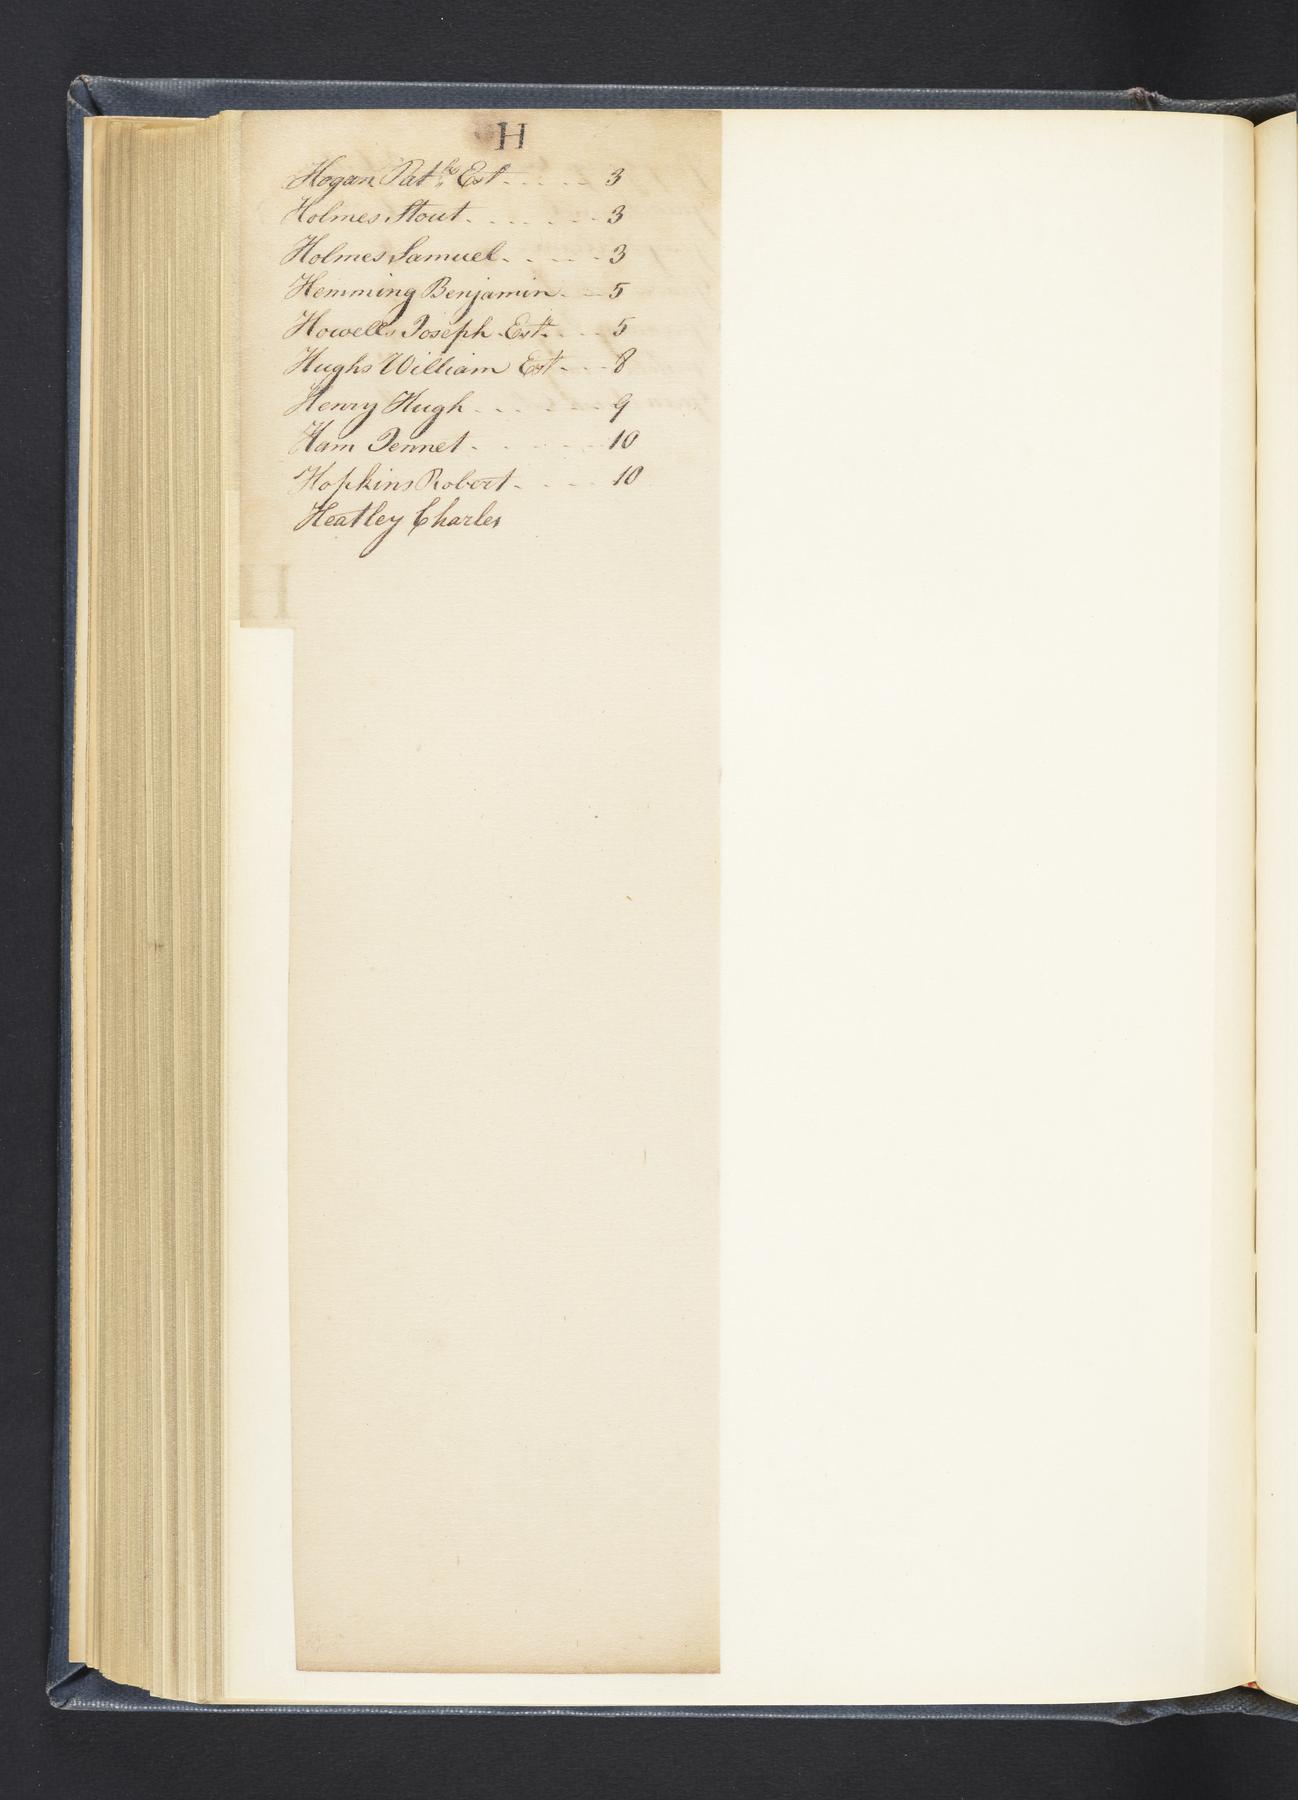 H
Hogan Patk. Est. . . . . 3
Holmes Stout. . . . . . . 3
Holmes Samuel. . . . . 3
Hemming Benjamin. . . 5
Howells Joseph. Est. . . . 5
Hughs William Est. . . 8
Henry Hugh . . . . . . 9
Ham Jennet . . . . . . 10
Hopkins Robert. . . . . 10
Heatley Charles
H